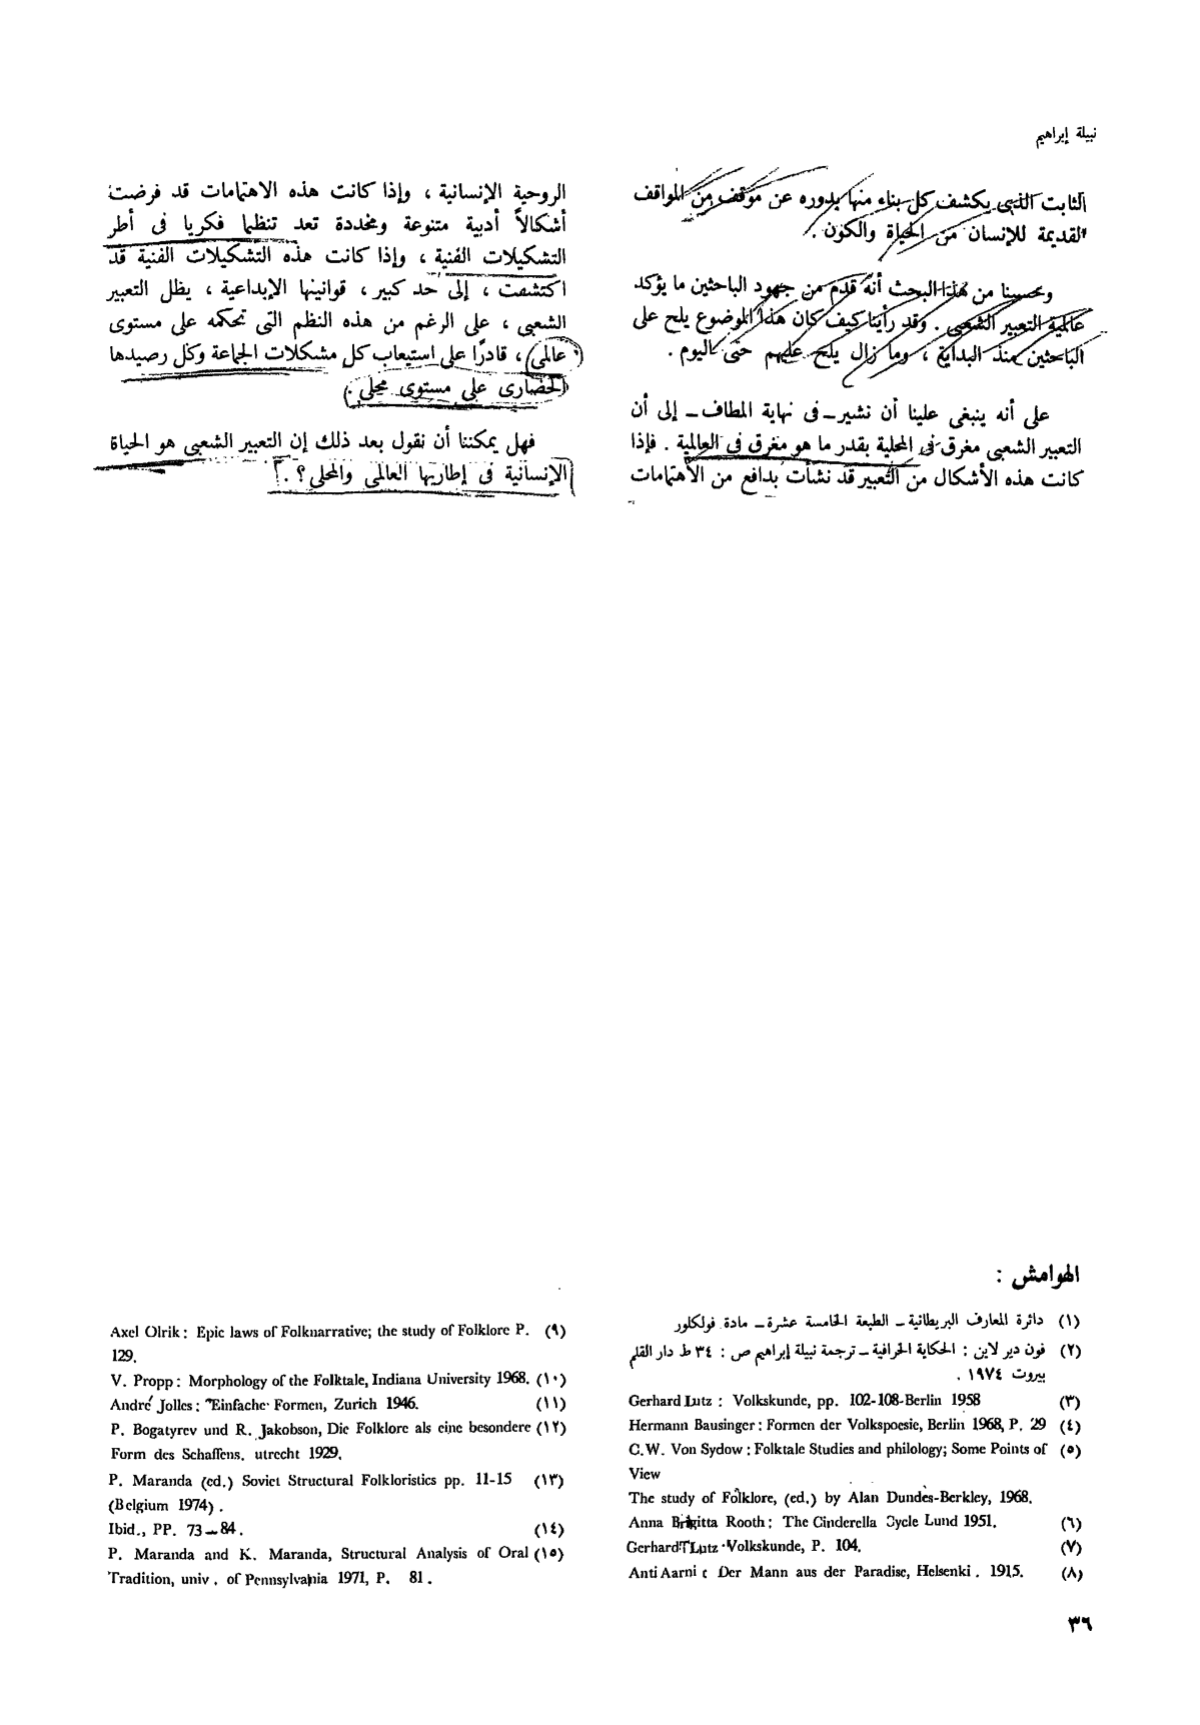 نبيلة إبراهيم
الثابت الذى يكشف كل بناء منها بدوره عن موقف من المواقف
القديمة للإنسان من الحياة والكون .
وحسبنا من هذا البحث أنه قدم من جهود الباحثين ما يؤكد
عالمية التعبير الشعبى . وقد رأينا كيف كان هذا الموضوع يلح على
الباحثين منذ البداية ، وما زال يلح عليهم حتى اليوم .
على أنه ينبغى علينا أن نشير ــ فى نهاية المطاف ــ إلى أن
التعبير الشعبى مغرق فى المحلية بقدر ما هو مغرق فى العالمية . فإذا
كانت هذه الأشكال من التعبير قد نشأت بدافع من الاهتمامات
الروحية الإنسانية ، وإذا كانت هذه الاهتمامات قد فرضت
أشكالاً أدبية متنوعة ومحددة تعد تنظيما فكريا فى أطر
التشكيلات الفنية ، وإذا كانت هذه التشكيلات الفنية قد
اكتشفت ، إلى حد كبير ، قوانينها الإبداعية ، يظل التعبير
الشعبى ، على الرغم من هذه النظم التى تحكمه على مستوى
عالمى ، قادرًا على استيعاب كل مشكلات الجماعة وكل رصيدها
الحضارى على مستوى محلى .
فهل يمكننا أن نقول بعد ذلك إن التعبير الشعبى هو الحياة
الإنسانية فى إطاريها العالمى والمحلى ؟ .
الهوامش :
(١) دائرة المعارف البريطانية ــ الطبعة الخامسة عشرة ــ مادة فولكلور
(٢) فون دير لاين : الحكاية الخرافية ــ ترجمة نبيلة إبراهيم ص : ٣٤ ط دار القلم
بيروت ١٩٧٤ .
Gerhard Lutz : Volkskunde, pp. 102-108-Berlin 1958 (٣)
Hermann Bausinger : Formen der Volkspoesie, Berlin 1968, P. 29 (٤)
C.W. Von Sydow : Folktale Studies and philology; Some Points of (٥)
View
The study of Folklore, (ed.) by Alan Dundes-Berkley, 1968.
Anna Brigitta Rooth : The Cinderella Cycle Lund 1951. (٦)
Gerhard Lutz Volkskunde, P. 104. (٧)
Anti Aarni : Der Mann aus der Paradise, Helsenki . 1915. (٨)
Axel Olrik : Epic laws of Folknarrative; the study of Folklore P. (٩)
129.
V. Propp : Morphology of the Folktale, Indiana University 1968. (١٠)
André Jolles : Einfache Formen, Zurich 1946. (١١)
P. Bogatyrev und R. Jakobson, Die Folklore als eine besondere (١٢)
Form des Schaffens. utrecht 1929.
P. Maranda (ed.) Soviet Structural Folkloristics pp. 11-15 (١٣)
(Belgium 1974) .
Ibid., PP. 73 – 84 . (١٤)
P. Maranda and K. Maranda, Structural Analysis of Oral (١٥)
Tradition, univ . of Pennsylvania 1971, P. 81 .
٣٦